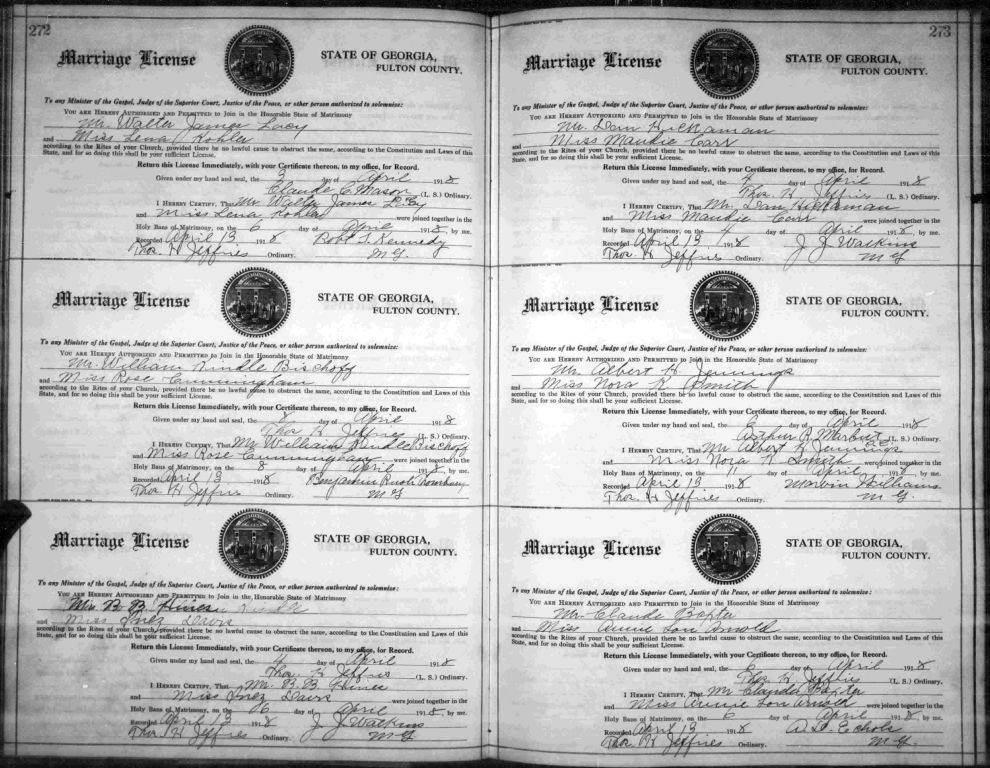 272
Marriage License
STATE OF GEORGIA,
FULTON COUNTY.
To any Minister of the Gospel, Judge of the Superior Court, Justice of the Peace, or other person authorized to solemnize:
YOU ARE HEREBY AUTHORIZED AND PERMITTED to Join in the Honorable State of Matrimony
Mr. Walter James Lacy
and Miss Lena Kohler
according to the Rites of your Church, provided there be no lawful cause to obstruct the same, according to the Constitution and Laws of this
State, and for so doing this shall be your sufficient License.
Return this License Immediately, with your Certificate thereon, to my office, for Record.
Given under my hand and seal, the 3 day of April 1918
Claude C. Mason (L. S.) Ordinary.
I HEREBY CERTIFY, That Mr. Walter James Lacy
and Miss Lena Kohler were joined together in the
Holy Bans of Matrimony, on the 6 day of April 1918, by me.
Recorded April 13 1918 Robt. T. Kennedy
Thos. H Jeffries Ordinary. M G.
Marriage License
STATE OF GEORGIA,
FULTON COUNTY.
To any Minister of the Gospel, Judge of the Superior Court, Justice of the Peace, or other person authorized to solemnize:
YOU ARE HEREBY AUTHORIZED AND PERMITTED to Join in the Honorable State of Matrimony
Mr. William Kindle Bischoff
and Miss Rose Cunningham
according to the Rites of your Church, provided there be no lawful cause to obstruct the same, according to the Constitution and Laws of this
State, and for so doing this shall be your sufficient License.
Return this License Immediately, with your Certificate thereon, to my office, for Record.
Given under my hand and seal, the 8 day of April 1918
Thos H Jeffries (L. S.) Ordinary.
I HEREBY CERTIFY, That Mr William Kindle Bischoff
and Miss Rose Cunningham were joined together in the
Holy Bans of Matrimony, on the 8 day of April 1918, by me.
Recorded April 13 1918 Benjamin
Thos H Jeffries Ordinary. M G
Marriage License
STATE OF GEORGIA,
FULTON COUNTY.
To any Minister of the Gospel, Judge of the Superior Court, Justice of the Peace, or other person authorized to solemnize:
YOU ARE HEREBY AUTHORIZED AND PERMITTED to Join in the Honorable State of Matrimony
Mr. B. B. Hines
and Miss Inez Davis
according to the Rites of your Church, provided there be no lawful cause to obstruct the same, according to the Constitution and Laws of this
State, and for so doing this shall be your sufficient License.
Return this License Immediately, with your Certificate thereon, to my office, for Record.
Given under my hand and seal, the 4 day of April 1918
Thos. H Jeffries (L. S.) Ordinary.
I HEREBY CERTIFY, That Mr. B. B. Hines
and Miss Inez Davis were joined together in the
Holy Bans of Matrimony, on the 6 day of April 1918, by me.
Recorded April 13 1918 J J Watkins
Thos. H Jeffries Ordinary. M G
273
Marriage License
STATE OF GEORGIA,
FULTON COUNTY.
To any Minister of the Gospel, Judge of the Superior Court, Justice of the Peace, or other person authorized to solemnize:
YOU ARE HEREBY AUTHORIZED AND PERMITTED to Join in the Honorable State of Matrimony
Mr. Dan Hickaman
and Miss Maudie Carr
according to the Rites of your Church, provided there be no lawful cause to obstruct the same, according to the Constitution and Laws of this
State, and for so doing this shall be your sufficient License.
Return this License Immediately, with your Certificate thereon, to my office, for Record.
Given under my hand and seal, the 4 day of April 1918
Thos. H Jeffries (L. S.) Ordinary.
I HEREBY CERTIFY, That Mr. Dan Hickaman
and Miss Maudie Carr were joined together in the
Holy Bans of Matrimony, on the 4 day of April 1918, by me.
Recorded April 13 1918 J J Watkins
Thos. H Jeffries Ordinary. M G
Marriage License
STATE OF GEORGIA,
FULTON COUNTY.
To any Minister of the Gospel, Judge of the Superior Court, Justice of the Peace, or other person authorized to solemnize:
YOU ARE HEREBY AUTHORIZED AND PERMITTED to Join in the Honorable State of Matrimony
Mr. Albert H Jennings
and Miss Nora K Smith
according to the Rites of your Church, provided there be no lawful cause to obstruct the same, according to the Constitution and Laws of this
State, and for so doing this shall be your sufficient License.
Return this License Immediately, with your Certificate thereon, to my office, for Record.
Given under my hand and seal, the day of April 1918
Arthur R. Marbut (L. S.) Ordinary.
I HEREBY CERTIFY, That Mr Albert H Jennings
and Miss Nora K Smith were joined together in the
Holy Bans of Matrimony, on the 11 day of April 1918, by me.
Recorded April 13 1918 Marvin Williams
Thos. H Jeffries Ordinary. M G.
Marriage License
STATE OF GEORGIA,
FULTON COUNTY.
To any Minister of the Gospel, Judge of the Superior Court, Justice of the Peace, or other person authorized to solemnize:
YOU ARE HEREBY AUTHORIZED AND PERMITTED to Join in the Honorable State of Matrimony
Mr. Claude Baxter
and Miss Annie Lou Arnold
according to the Rites of your Church, provided there be no lawful cause to obstruct the same, according to the Constitution and Laws of this
State, and for so doing this shall be your sufficient License.
Return this License Immediately, with your Certificate thereon, to my office, for Record.
Given under my hand and seal, the 6 day of April 1918
Thos H Jeffries (L. S.) Ordinary.
I HEREBY CERTIFY, That Mr Claude Baxter
and Miss Annie Lou Arnold were joined together in the
Holy Bans of Matrimony, on the 6 day of April 1918, by me.
Recorded April 13 1918 A. D. Echols
Thos. H Jeffries Ordinary. M. G.